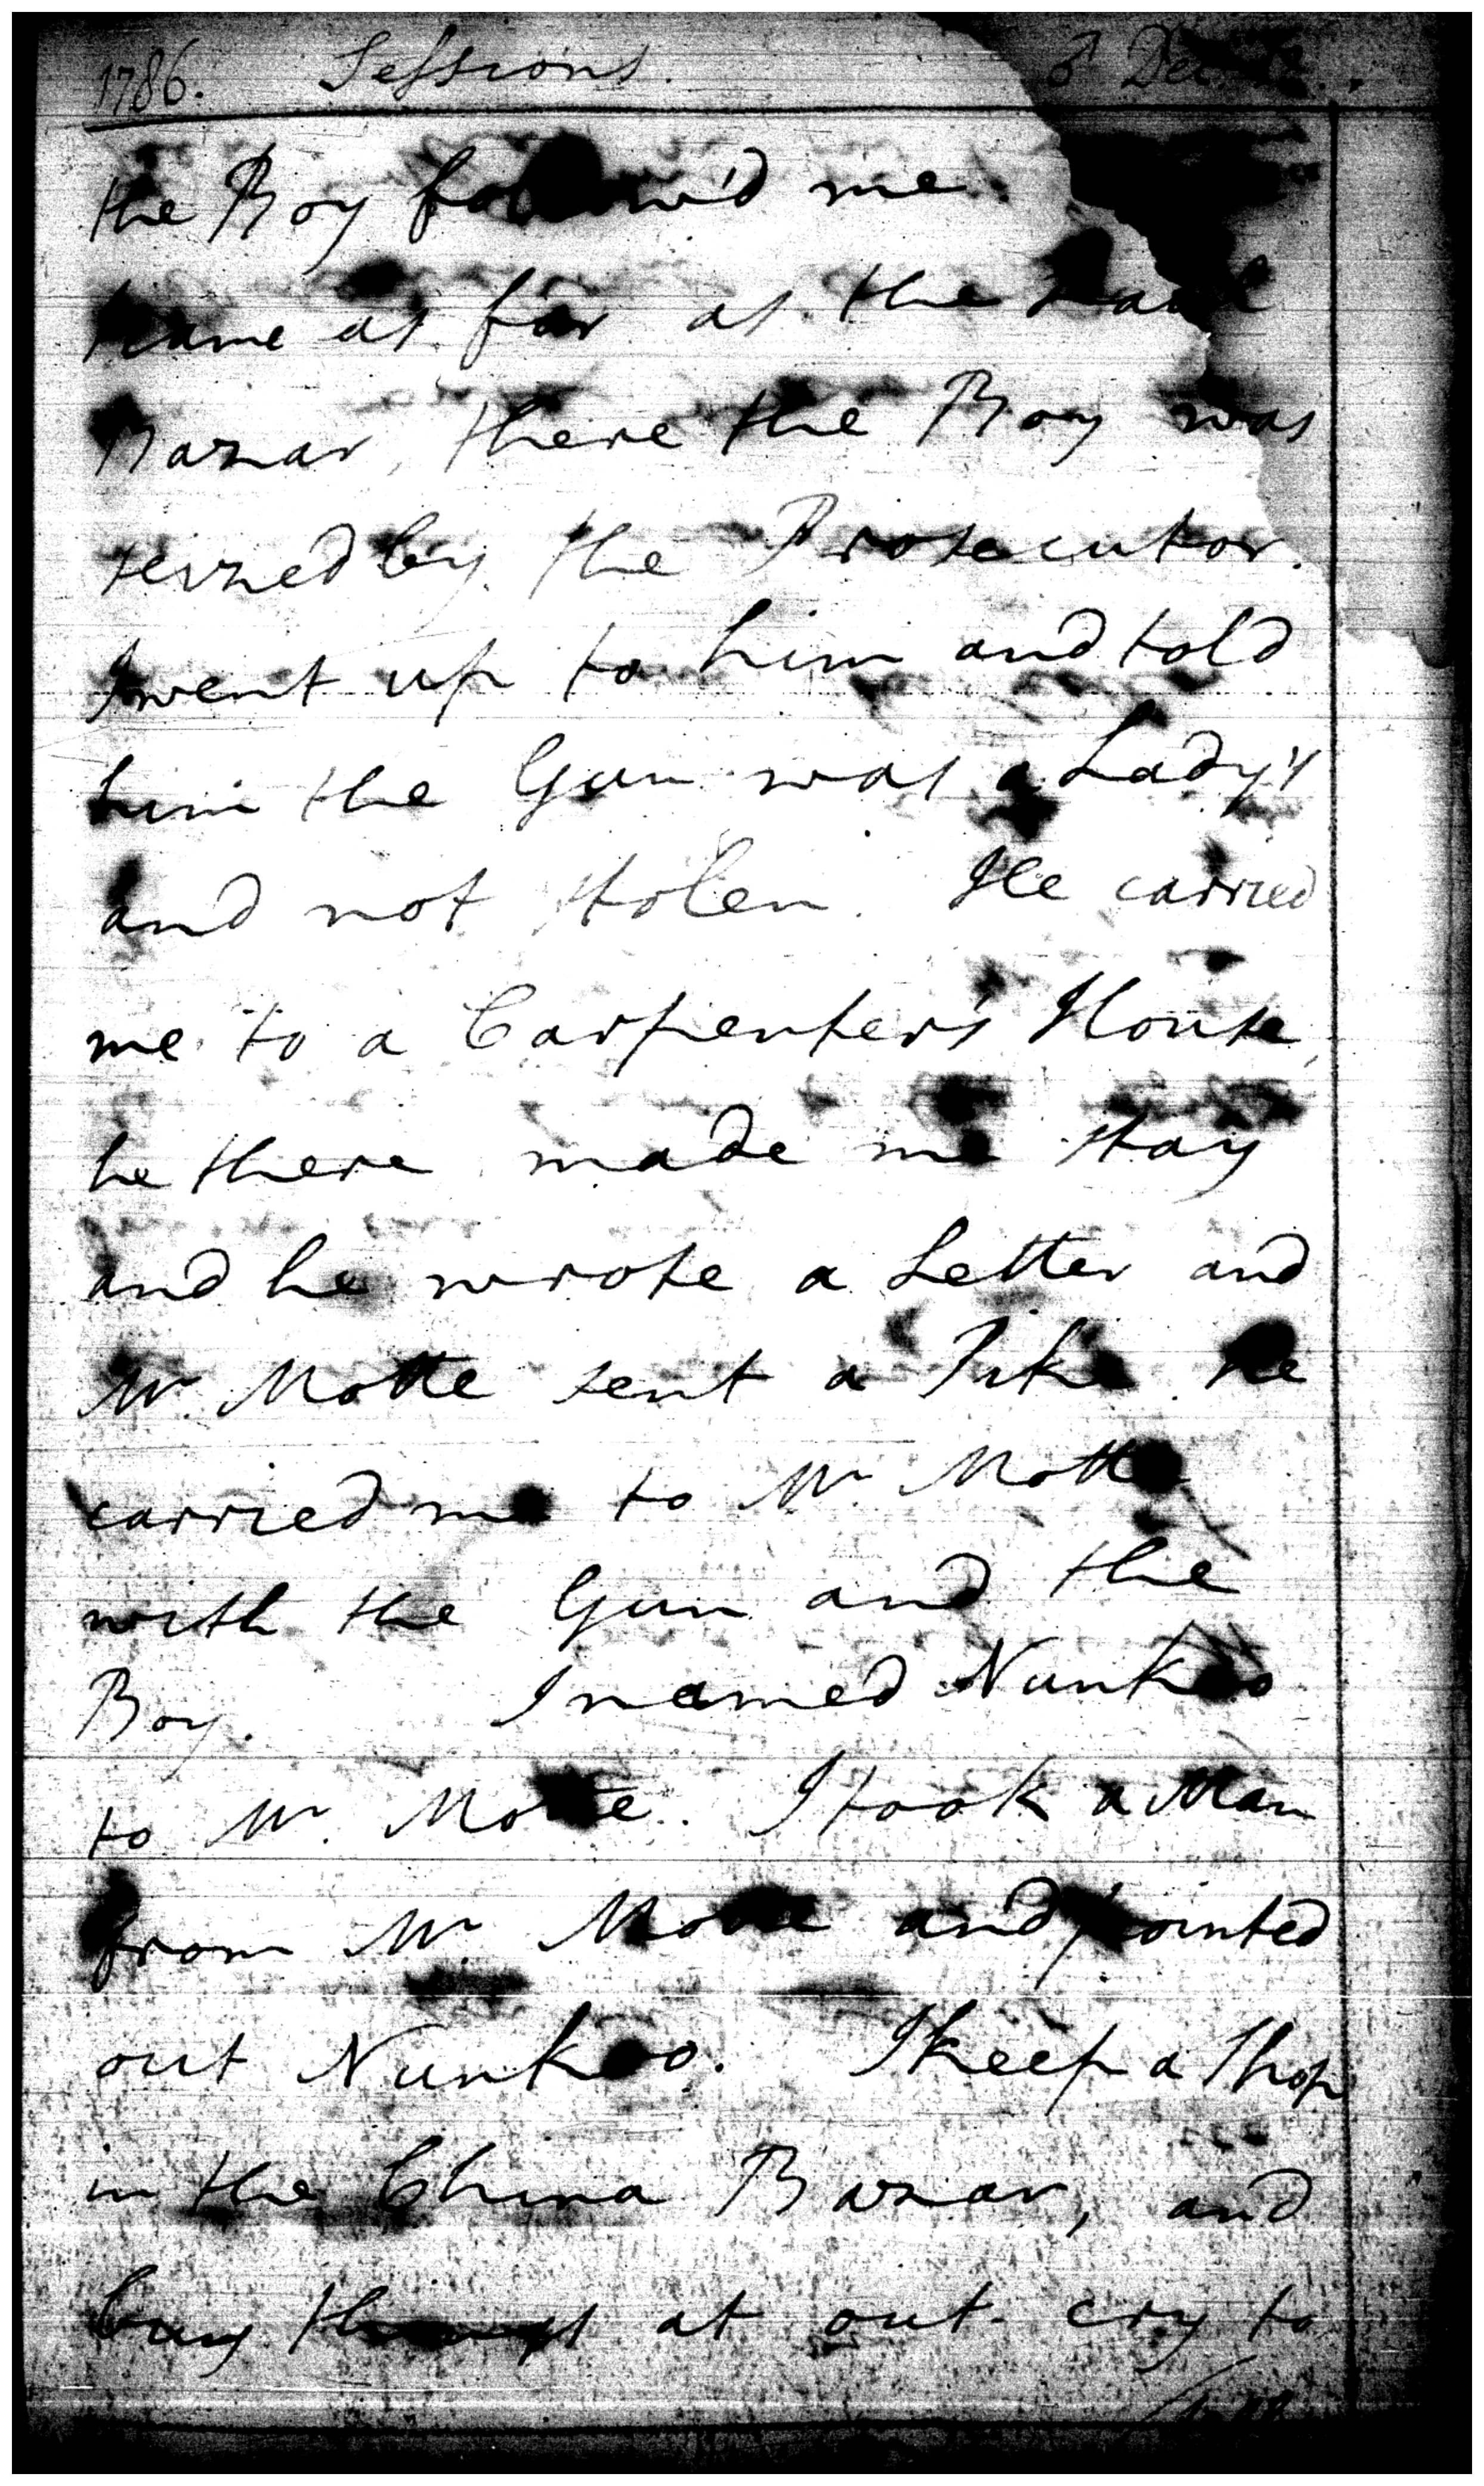 1786. Sessions. ♂ Dec
the Boy follow'd me.
came as far as the Laul
Bazar, there the Boy was
seized by the Prosecutor.
I went up to him and told
him the Gun was a Lady's
and not stolen. He carried
me to a Carpenter's House,
he there made me stay
and he wrote a Letter and
Mr. Motte sent a he
carried me to Mr. Motte
with the Gun and the
Boy. I named Nunkoo
to Mr. Motte. I took a Man
from Mr. Motte and pointed
out Nunkoo. I keep a Shop
in the China Bazar, and
buy things at out-cry to